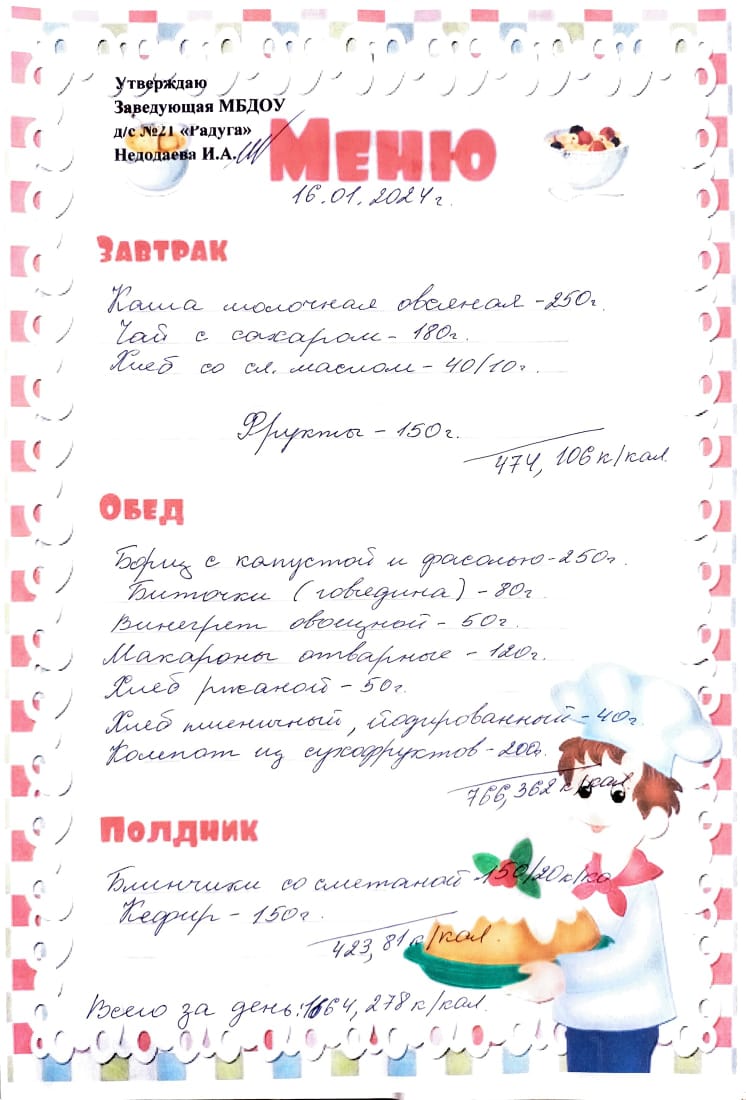 Утверждаю
Заведующая МБДОУ
д/с №21 «Радуга»
Недодаева И.А.
Меню
16.01.2024г.
Завтрак
Каша молочная овсяная - 250г.
Чай с сахаром - 180г.
Хлеб со сл. маслом - 40/10г.
Фрукты - 150г.
474, 106 к/кал.
Обед
Борщ с капустой и фасолью - 250г.
Биточки (говядина) - 80г.
Винегрет овощной - 50г.
Макароны отварные - 120г.
Хлеб ржаной - 50г.
Хлеб пшеничный, йодированный - 40г.
Компот из сухофруктов - 200г.
766, 362 к/кал.
Полдник
Блинчики со сметаной 150/20к/ка
Кефир - 150г.
423, 81 к/кал.
Всего за день: 1664, 278 к/кал.